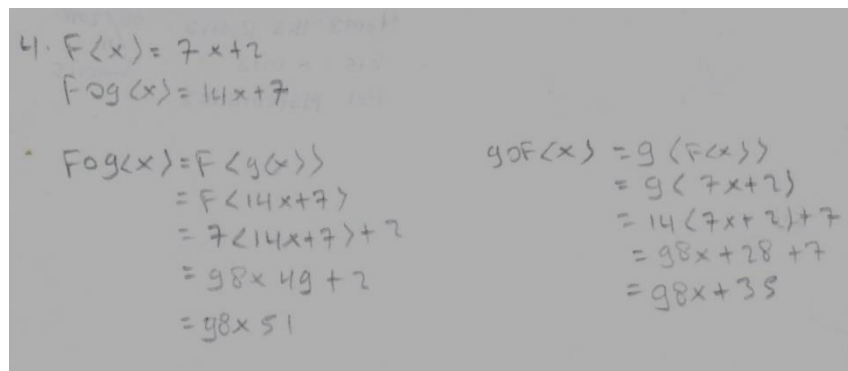 4. F<x> = 7x+2
Fog<x> = 14x+7
Fog<x> = F<g<x>>
= F<14x+7>
= 7<14x+7>+2
= 98x 49 + 2
= 98x 51
goF<x> = g<F<x>>
= g<7x+2>
= 14<7x+2>+7
= 98x+28+7
= 98x+35